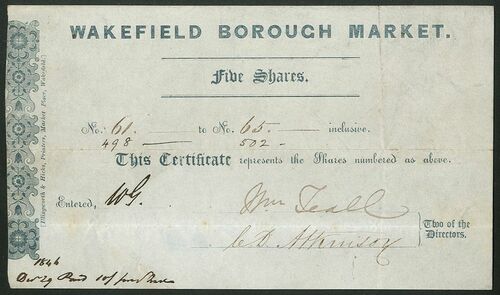 WAKEFIELD BOROUGH MARKET.
Five Shares.
No. 61 — to No. 65. — inclusive.
498 — 502 —
This Certificate represents the Shares numbered as above.
Entered, WG.
Wm Teall
C D. Atkinson
Two of the
Directors.
1846
Decr 29 Paid 10/
Illingworth & Hicks, Printers, Market Place, Wakefield.